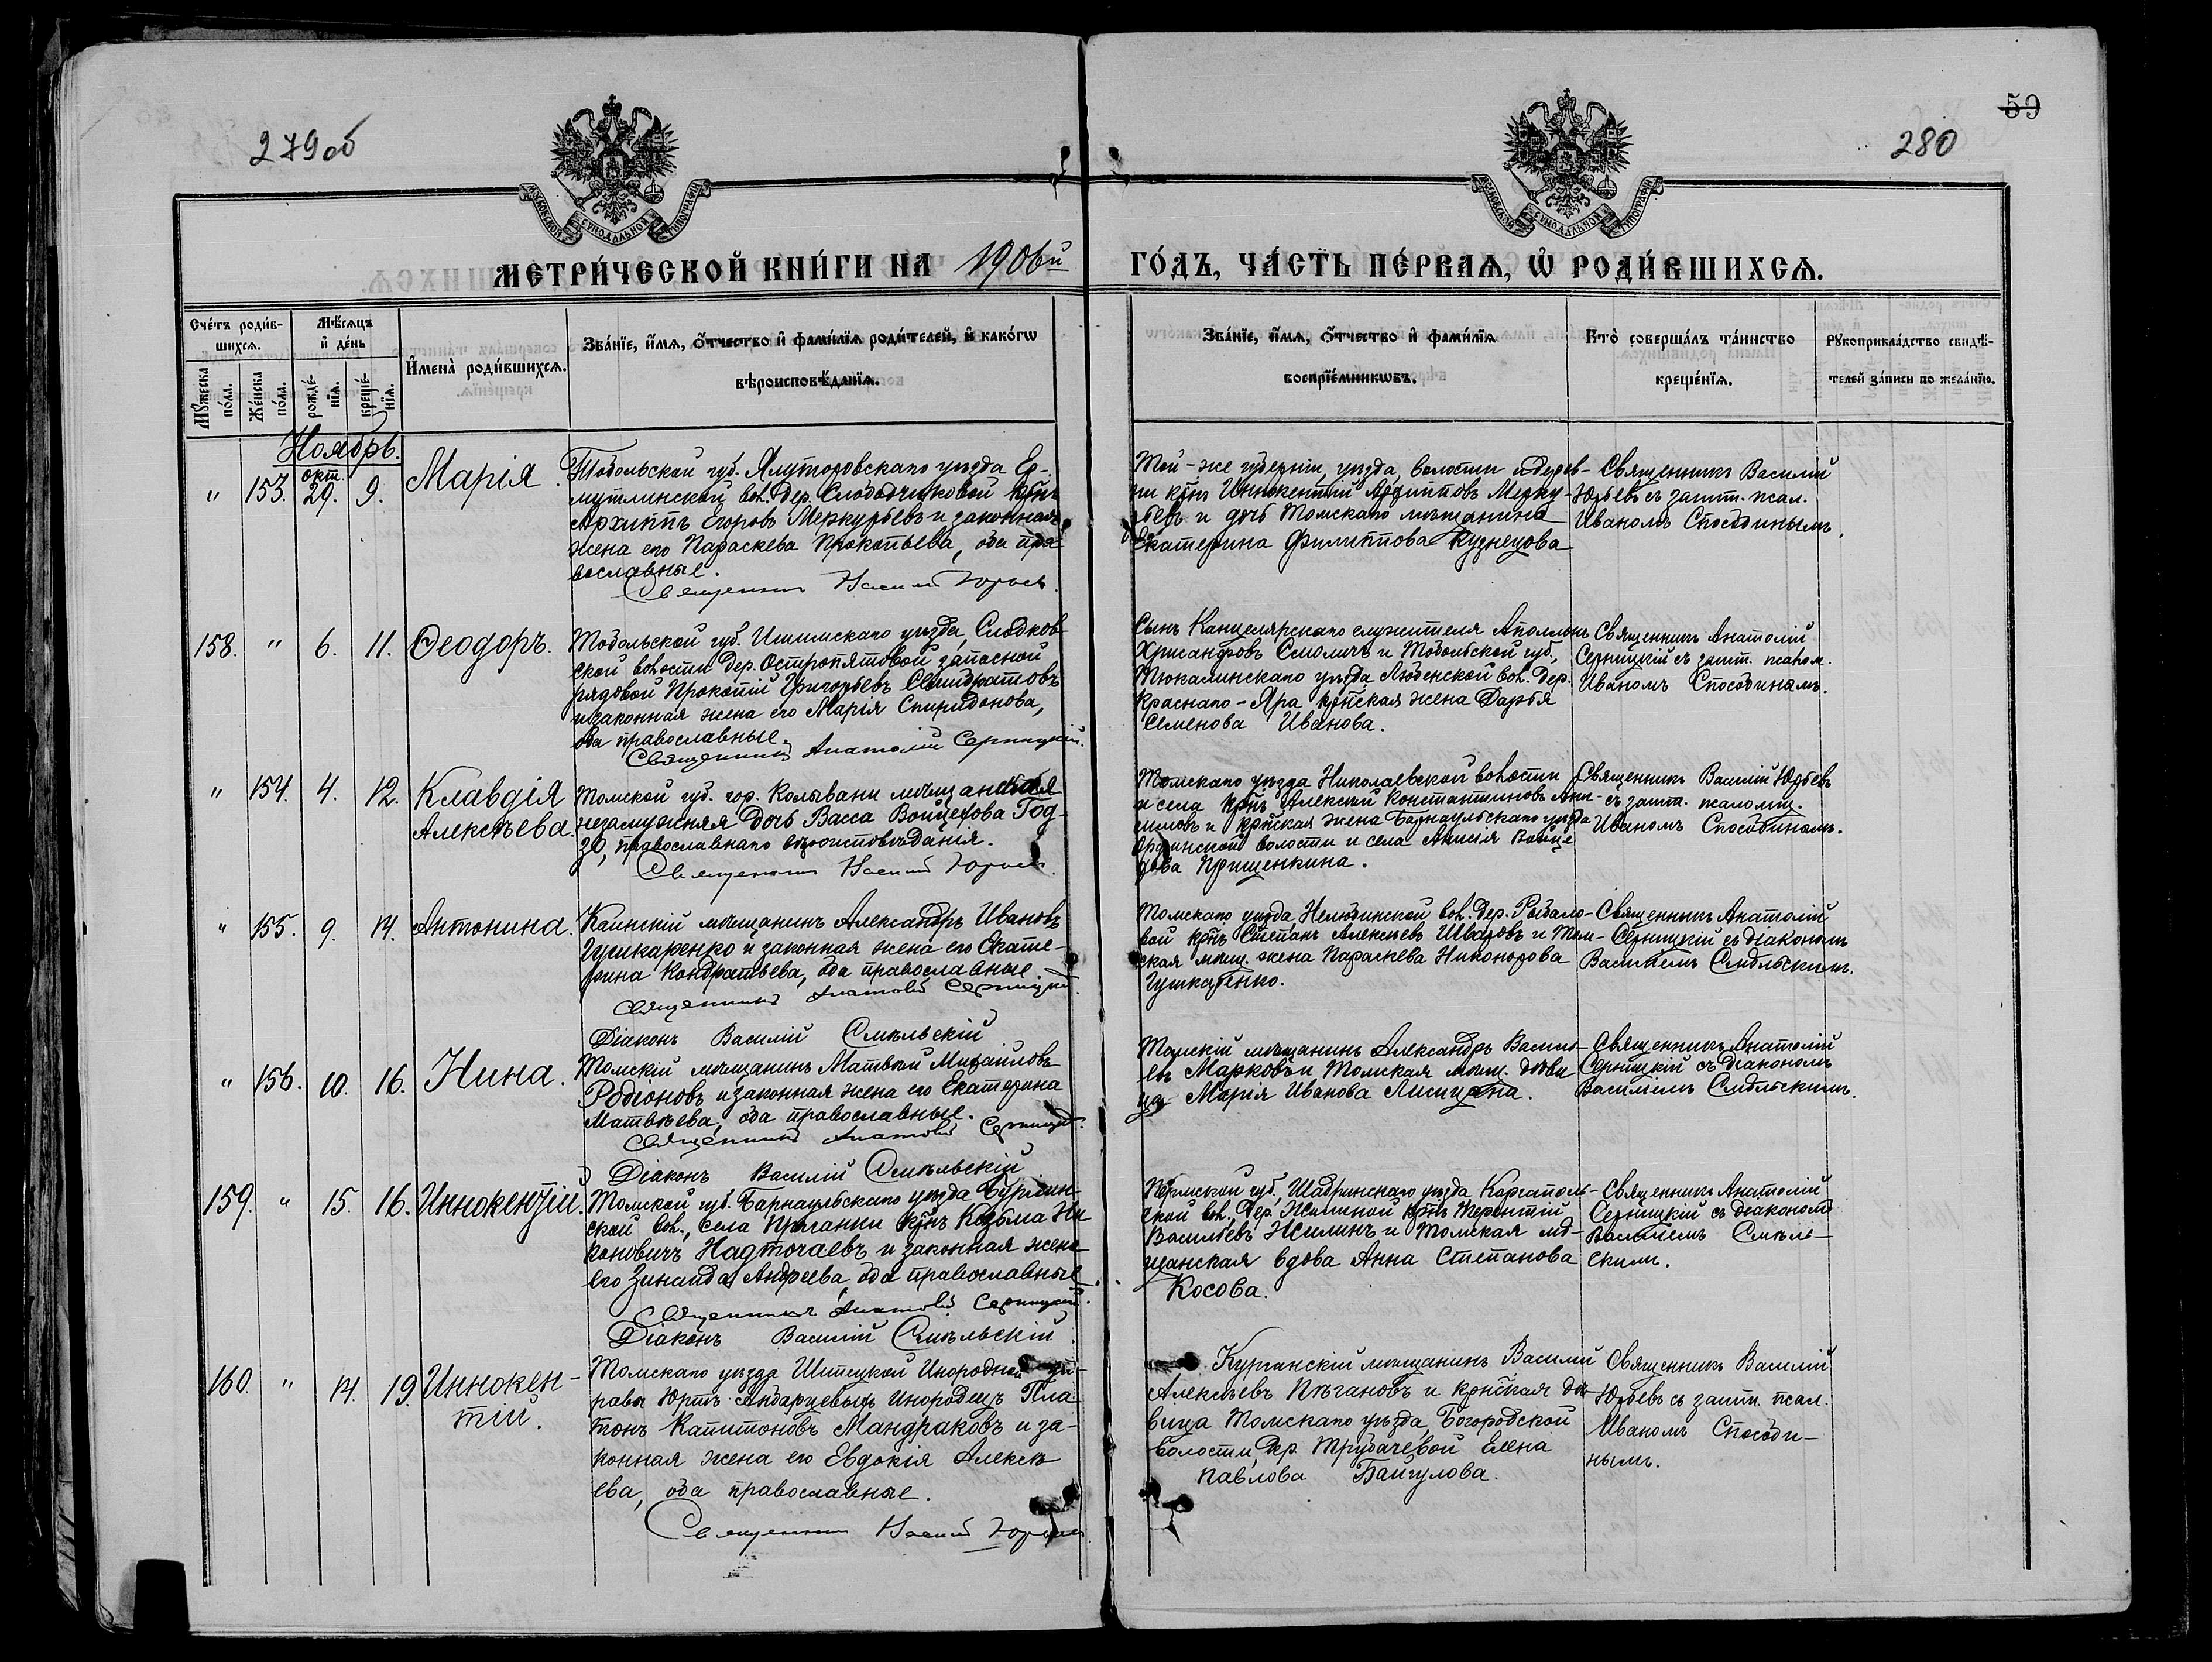 279об
280
59
МОСКОВСКОЙ СѴНОДАЛЬНОЙ ТИПОГРАФІИ
МОСКОВСКОЙ СѴНОДАЛЬНОЙ ТИПОГРАФІИ
МЕТРИ́ЧЕСКОЙ КНИ́ГИ НА 1906й ГО́ДЪ, ЧА́СТЬ ПЕ́РВАѦ, Ѡ҆ РОДИ́ВШИХСѦ.
Сче́тъ роди́в-
шихсѧ.
Мꙋ́жеска по́ла.
Же́нска по́ла.
Мѣ́сѧцъ
и҆ де́нь
рожде́-
нїѧ.
креще́-
нїѧ.
И҆мена̀ роди́вшихсѧ.
Зва́нїе, и҆́мѧ, ѻ҆́тчество и҆ фами́лїѧ роди́телей, и҆ како́гѡ
вѣроисповѣ́данїѧ.
Зва́нїе, и҆́мѧ, ѻ҆́тчество и҆ фами́лїѧ
воспрїе́мникѡвъ.
Кто̀ соверша́лъ та́инство
креще́нїѧ.
Рꙋкоприкла́дство свидѣ́-
телей за́писи по жела́нїю.
Ноябрь.
" 153. окт. 29. 9. Марія.
Тобольской губ. Ялуторовскаго уѣзда Ер-
мутлинской вол. дер. Слободчиковой крнъ
Архиппъ Егоровъ Меркурьевъ и законная
жена его Параскева Прокопьева, оба пра
вославные.
Священникъ Василій Юрьевъ
Той-же губерніи, уѣзда, волости и дерев-
ни крнъ Иннокентій Архипповъ Мерку-
рьевъ и дочь Томскаго мѣщанина
Екатерина Филиппова Кузнецова
Священникъ Василій
Юрьевъ съ зашт. псал.
Иваномъ Способинымъ.
158. " 6. 11. Ѳеодоръ.
Тобольской губ. Ишимскаго уѣзда, Слодков-
ской волости дер. Остропятовой запасной
рядовой Прокопій Григорьевъ
и законная жена его Марія Спиридонова,
оба православные.
Священникъ Анатолій Серницкій.
Сынъ Канцелярскаго служителя Аполлонъ
Хрисанфовъ Смоличъ и Тобольской губ.,
Тюкалинскаго уѣзда Любенской вол. Дер.
Краснаго-Яра крнская жена Дарья
Семенова Иванова.
Священникъ Анатолій
Серницкій съ зашт. псалом.
Иваномъ Способинымъ.
" 154. 4. 12. Клавдія
Алексѣева.
Томской губ. гор. Колывани мѣщанская
незамужняя дочь Васса Войцехова Год-
зо, православнаго вѣроисповѣданія.
Священникъ Василій Юрьевъ
Томскаго уѣзда Николаевской волости
и села крнъ Алексѣй Константиновъ Ани-
симовъ и крнская жена Барнаульскаго уѣзда
Ординской волости и села Анисія Войце
хова Прищепкина.
Священникъ Василій Юрьевъ
съ зашт. псаломщ.
Иваномъ Способинымъ.
" 155. 9. 14. Антонина.
Каинскій мѣщанинъ Александръ Ивановъ
Гушкаренко и законная жена его Екате-
рина Кондратьева, оба православные.
Священникъ Анатолій Серницкій.
Діаконъ Василій Смѣльскій
Томскаго уѣзда, Нелюбинской вол. дер. Рыбало-
вой крнъ Степанъ Алексѣевъ Шваровъ и Том-
ская мѣщ. жена Параскева Никонорова
Гушкаренко.
Священникъ Анатолій
Серницкій съ діакономъ
Василіемъ Смѣльскимъ.
" 156. 10. 16. Нина.
Томскій мѣщанинъ Матвѣй Михайловъ
Родіоновъ и законная жена его Екатерина
Матвѣева, оба православные.
Священникъ Анатолій Серницкій.
Діаконъ Василій Смѣльскій
Томскій мѣщанинъ Александръ Василь-
евъ Марковъ и Томская мѣщ. дѣви
ца Марія Иванова Лисицына.
Священникъ Анатолій
Серницкій съ діакономъ
Василіемъ Смѣльскимъ.
159. " 15. 16. Иннокентій.
Томской губ. Барнаульскаго уѣзда Бурлин-
ской вол., села Прыганки крнъ Козьма Ни
коновичъ Надточаевъ и законная жена
его Зинаида Андреева, оба православные
Священникъ Анатолій Серницкій.
Діаконъ Василій Смѣльскій.
Пермской губ., Шадринскаго уѣзда Каргаполь-
ской вол. Дер. Жилиной крнъ Терентій
Васильевъ Жилинъ и Томская мѣ-
щанская вдова Анна Степанова
Косова.
Священникъ Анатолій
Серницкій съ діакономъ
Василіемъ Смѣль-
скимъ.
160. " 14. 19. Иннокен-
тій.
Томскаго уѣзда Шепецкой Инородной уп-
равы Юртъ Инородецъ Пла
тонъ Капитоновъ Мандраковъ и за-
конная жена его Евдокія Алексѣ
ева, оба православные.
Священникъ Василій Юрьевъ
Курганскій мѣщанинъ Василій
Алексѣевъ Пѣгановъ и крнская дѣ-
вица Томскаго уѣзда, Богородской
волости, дер. Трубачевой Елена
Павлова Байгулова.
Священникъ Василій
Юрьевъ съ зашт. псал.
Иваномъ Способи-
нымъ.